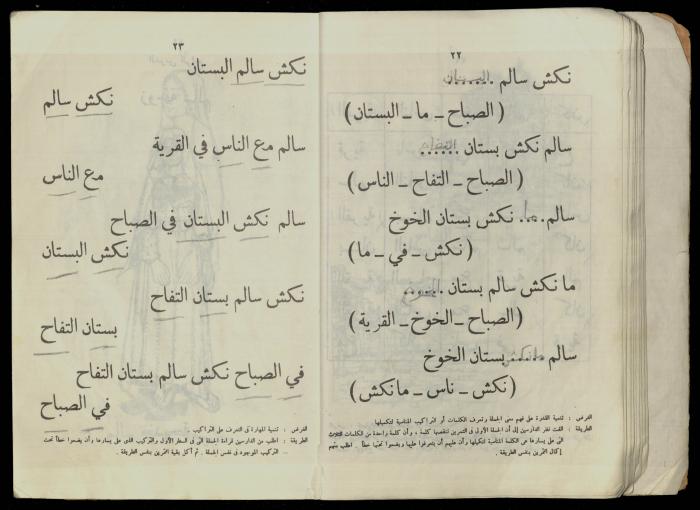 ٢٢
نكش سالم ........ البستان
(الصباح ـ ما ـ البستان)
سالم نكش بستان ...... التفاح
(الصباح ـ التفاح ـ الناس)
سالم ..ما.. نكش بستان الخوخ
(نكش ـ في ـ ما)
ما نكش سالم بستان ...... الخوخ
(الصباح ـ الخوخ ـ القرية)
سالم ..... مانكش بستان الخوخ
(نكش ـ ناس ـ مانكش)
الغرض : تنمية القدرة على فهم معنى الجملة وتعرف الكلمات أو التراكيب المناسبة لتكميلها .
الطريقة : الفت نظر الدارسين إلى أن الجملة الأولى فى التمرين تنقصها كلمة ، وأن كلمة واحدة من الكلمات الثلاث
التى على يسارها هى الكلمة المناسبة لتكملها وأن عليهم أن يتعرفوا عليها ويضعوا تحتها خطاً . اطلب منهم
إكمال التمرين بنفس الطريقة .
٢٣
نكش سالم البستان
نكش سالم
سالم مع الناس في القرية
مع الناس
سالم نكش البستان في الصباح
نكش البستان
نكش سالم بستان التفاح
بستان التفاح
في الصباح نكش سالم بستان التفاح
في الصباح
الغرض : تنمية المهارة فى التعرف على التراكيب .
الطريقة : اطلب من الدارسين قراءة الجملة التى فى السطر الأول والتركيب الذى على يسارها وأن يضعوا خطاً تحت
التركيب الموجود فى نفس الجملة . ثم أكمل بقية التمرين بنفس الطريقة .